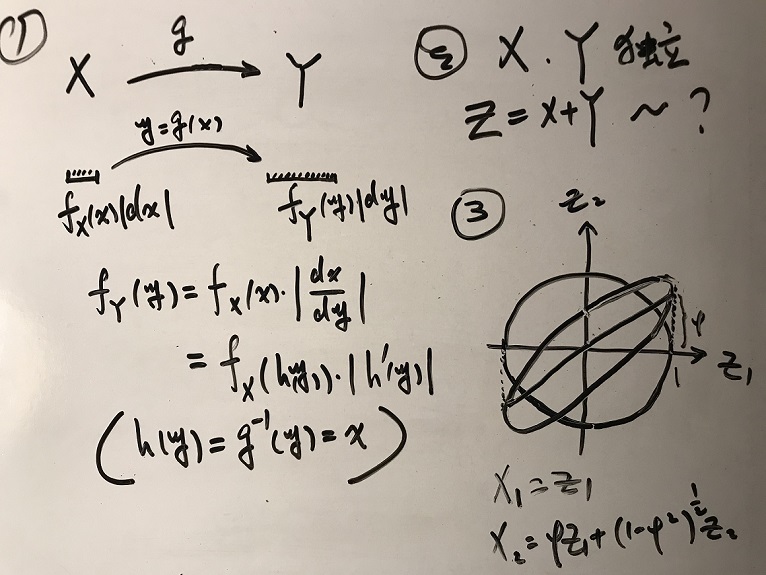 ① X g Y
y=g(x)
f_X(x)|dx| f_Y(y)|dy|
f_Y(y)=f_X(x)·|dx/dy|
=f_X(h(y))·|h'(y)|
(h(y)=g⁻¹(y)=x)
② X.Y 独立
Z=X+Y ~ ?
③ Z₂
φ
1 Z₁
X₁=Z₁
X₂=φZ₁+(1-φ²)^½Z₂